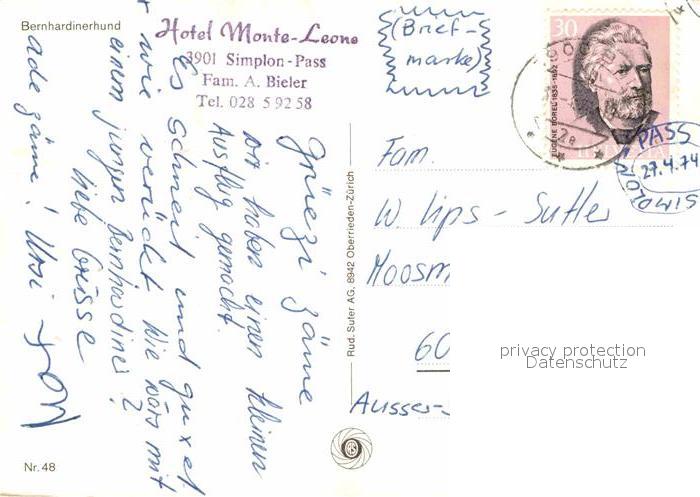 Bernhardinerhund
Hotel Monte-Leone
3901 Simplon-Pass
Fam. A. Bieler
Tel. 028 5 92 58
Grüezi zäme
Wir haben einen kleinen
Ausflug gemacht.
Es schneit und
wie verückt. Wie wärs mit
einem jungen Bernhardiner?
liebe Grüsse
ade zäme! Ursi
Nr. 48
Rud. Suter AG, 8942 Oberrieden-Zürich
(Brief-
marke)
30
EUGÈNE BOREL 1835-1892
HELVETIA
PASS
27.4.74
Fam.
W. Lips - Sutter
Moosm
60
Ausser-
privacy protection
Datenschutz